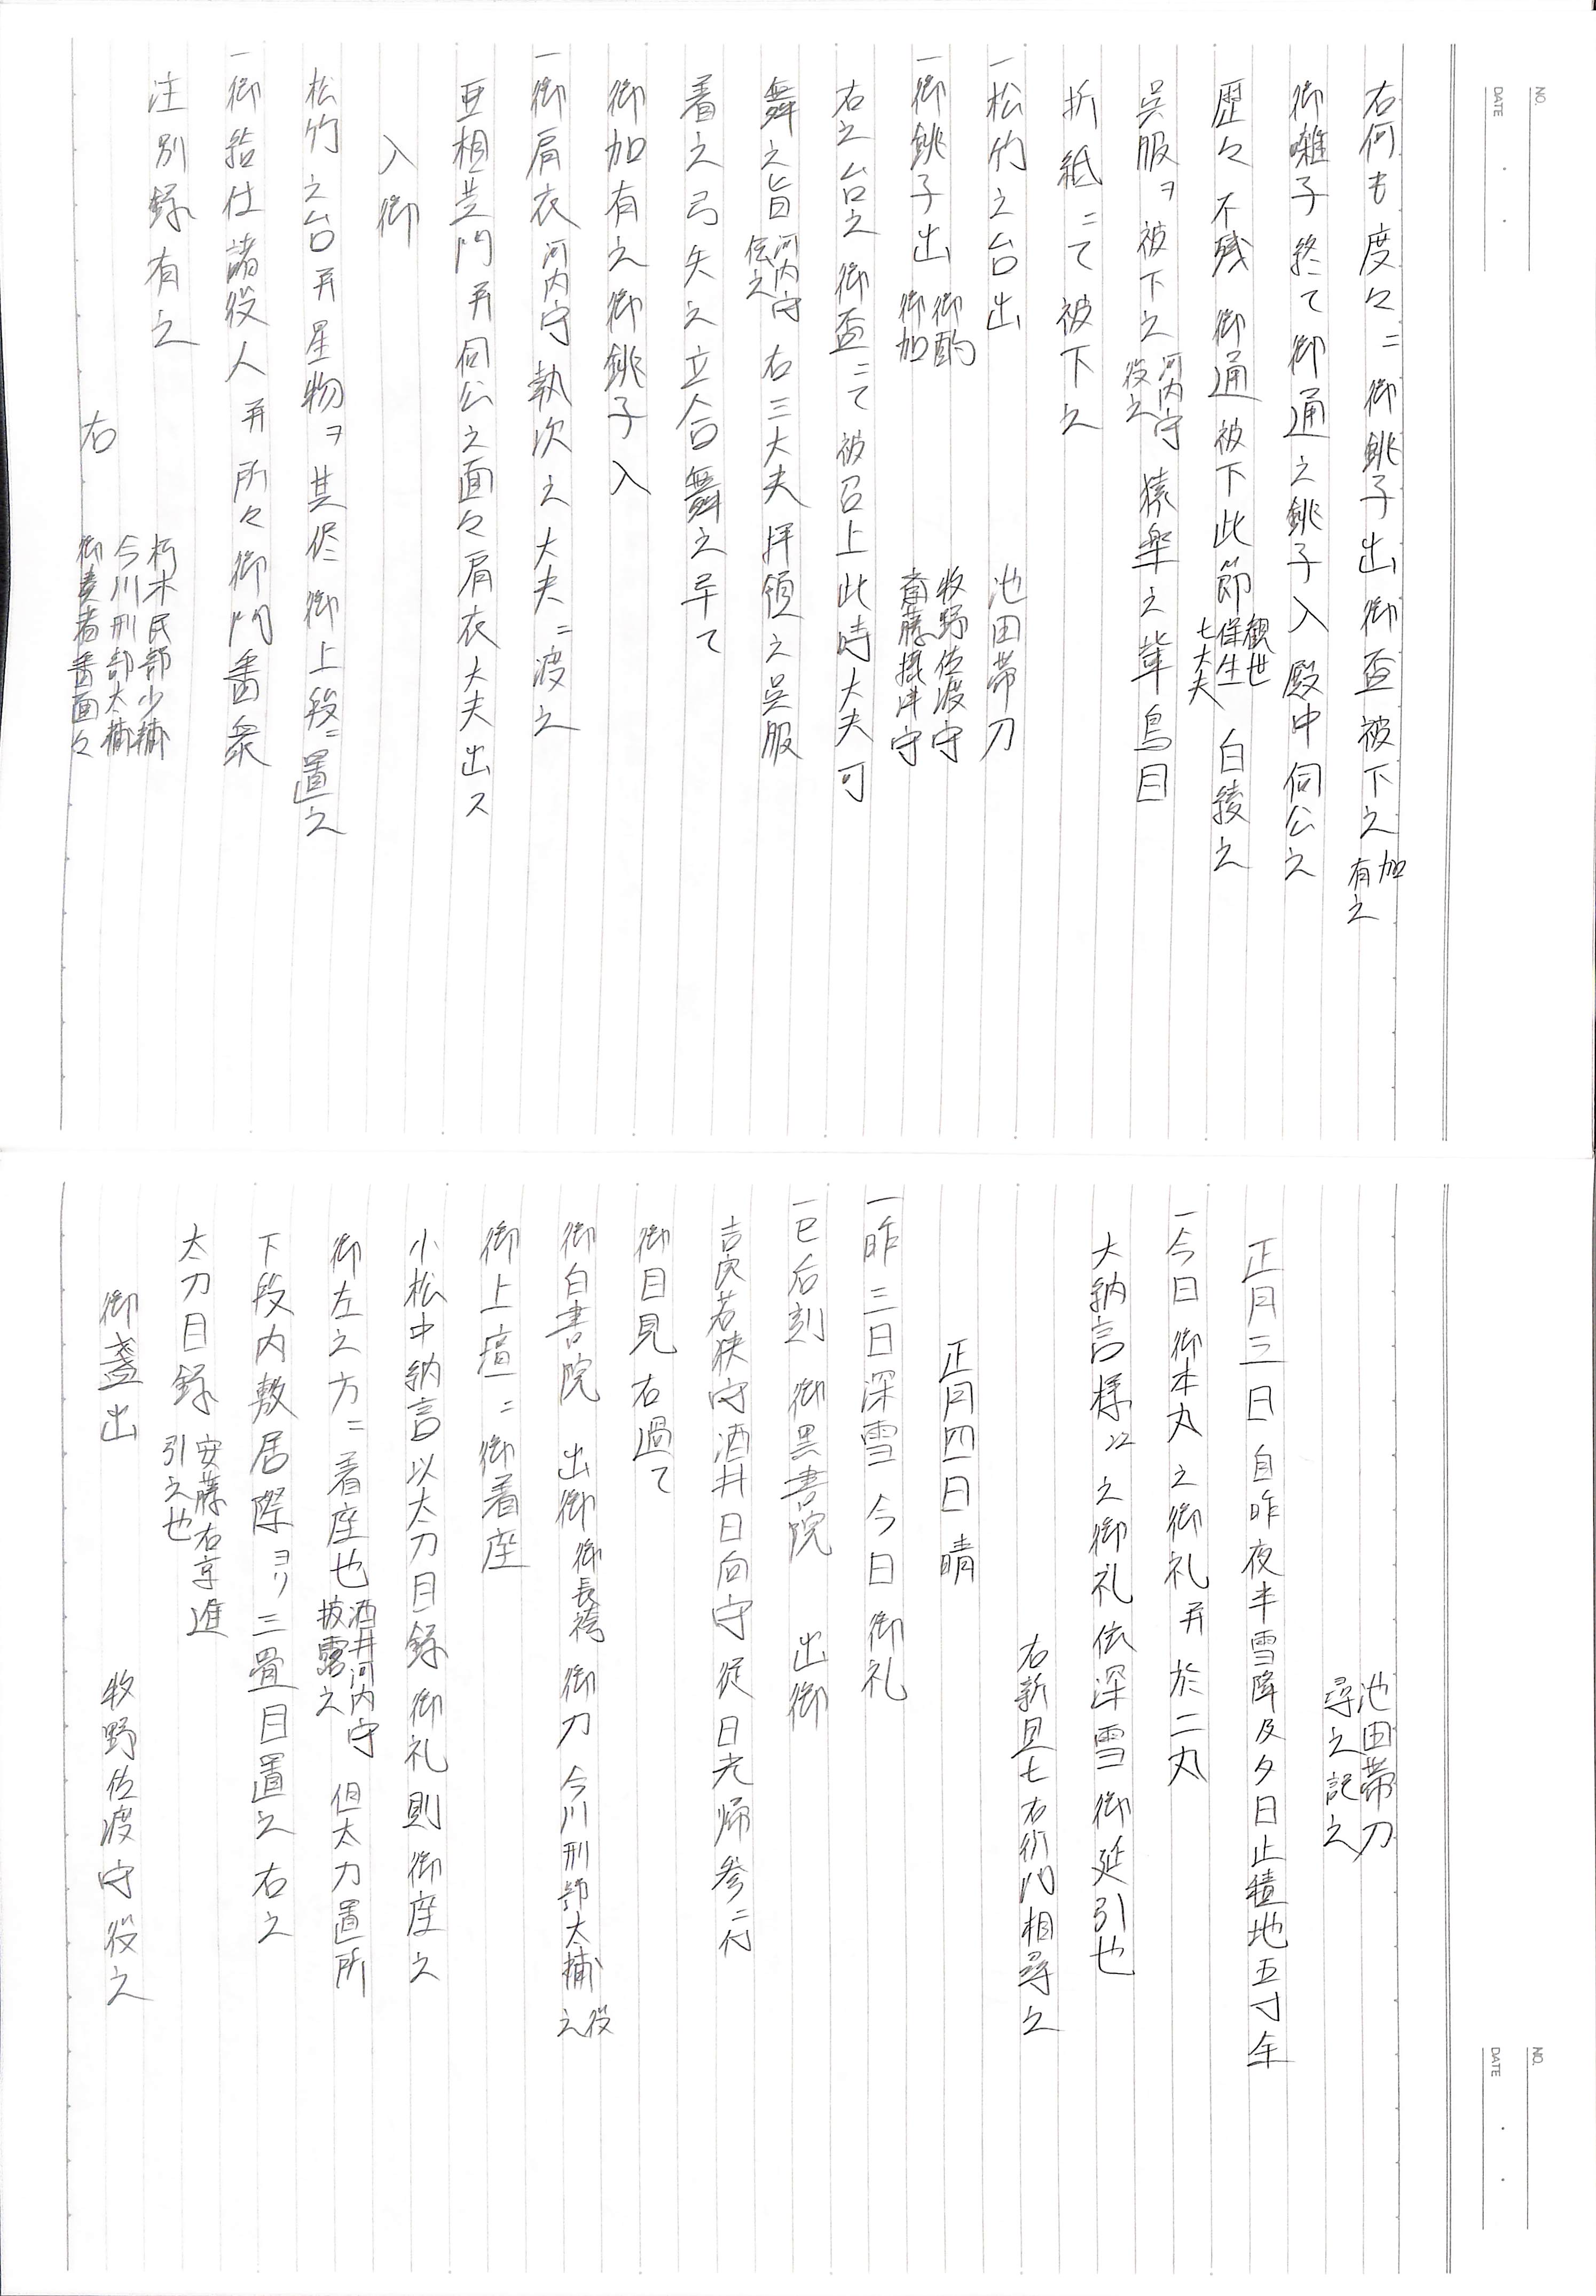 NO.
DATE
右何も度々ニ御銚子出御盃被下之 加有之
御囃子終て御通之銚子入殿中伺公之
歴々不残御通被下此節 観世 保生 七大夫 白綾之
呉服ヲ被下之 河内守役之 猿楽之輩鳥目
折紙ニて被下之
一松竹之台出 池田帯刀
一御銚子出 御酌 御加 牧野佐渡守 斎藤摂津守
右之台之御盃ニて被召上此時大夫可
舞之旨 河内守伝之 右三大夫拝領之呉服
着之弓矢之立合舞之早て
御加有之御銚子入
一御肩衣河内守執次之大夫ニ渡之
亜相芝門并伺公之面々肩衣大夫出ス
入御
松竹之台并星物ヲ其侭御上段ニ置之
一御給仕諸役人并所々御門番衆
注別録有之
右 朽木民部少輔
今川刑部太輔
御奏者番面々
NO.
DATE
池田帯刀
尋之記之
正月三日自昨夜半雪降及夕日止積地五寸余
一今日御本丸之御礼并於二丸
大納言様江之御礼依深雪御延引也
右新見七右衛門相尋之
正月四日晴
一昨三日深雪今日御礼
一巳后刻御黒書院 出御
吉良若狭守酒井日向守従日光帰参ニ付
御目見右過て
御白書院 出御 御長袴 御刀 今川刑部太輔役之
御上壇ニ御着座
小松中納言以太刀目録御礼則御座之
御左之方ニ着座也 酒井河内守披露之 但太刀置所
下段内敷居際ヨリ三畳目置之右之
太刀目録 安藤右京進引之也
御盞出 牧野佐渡守役之